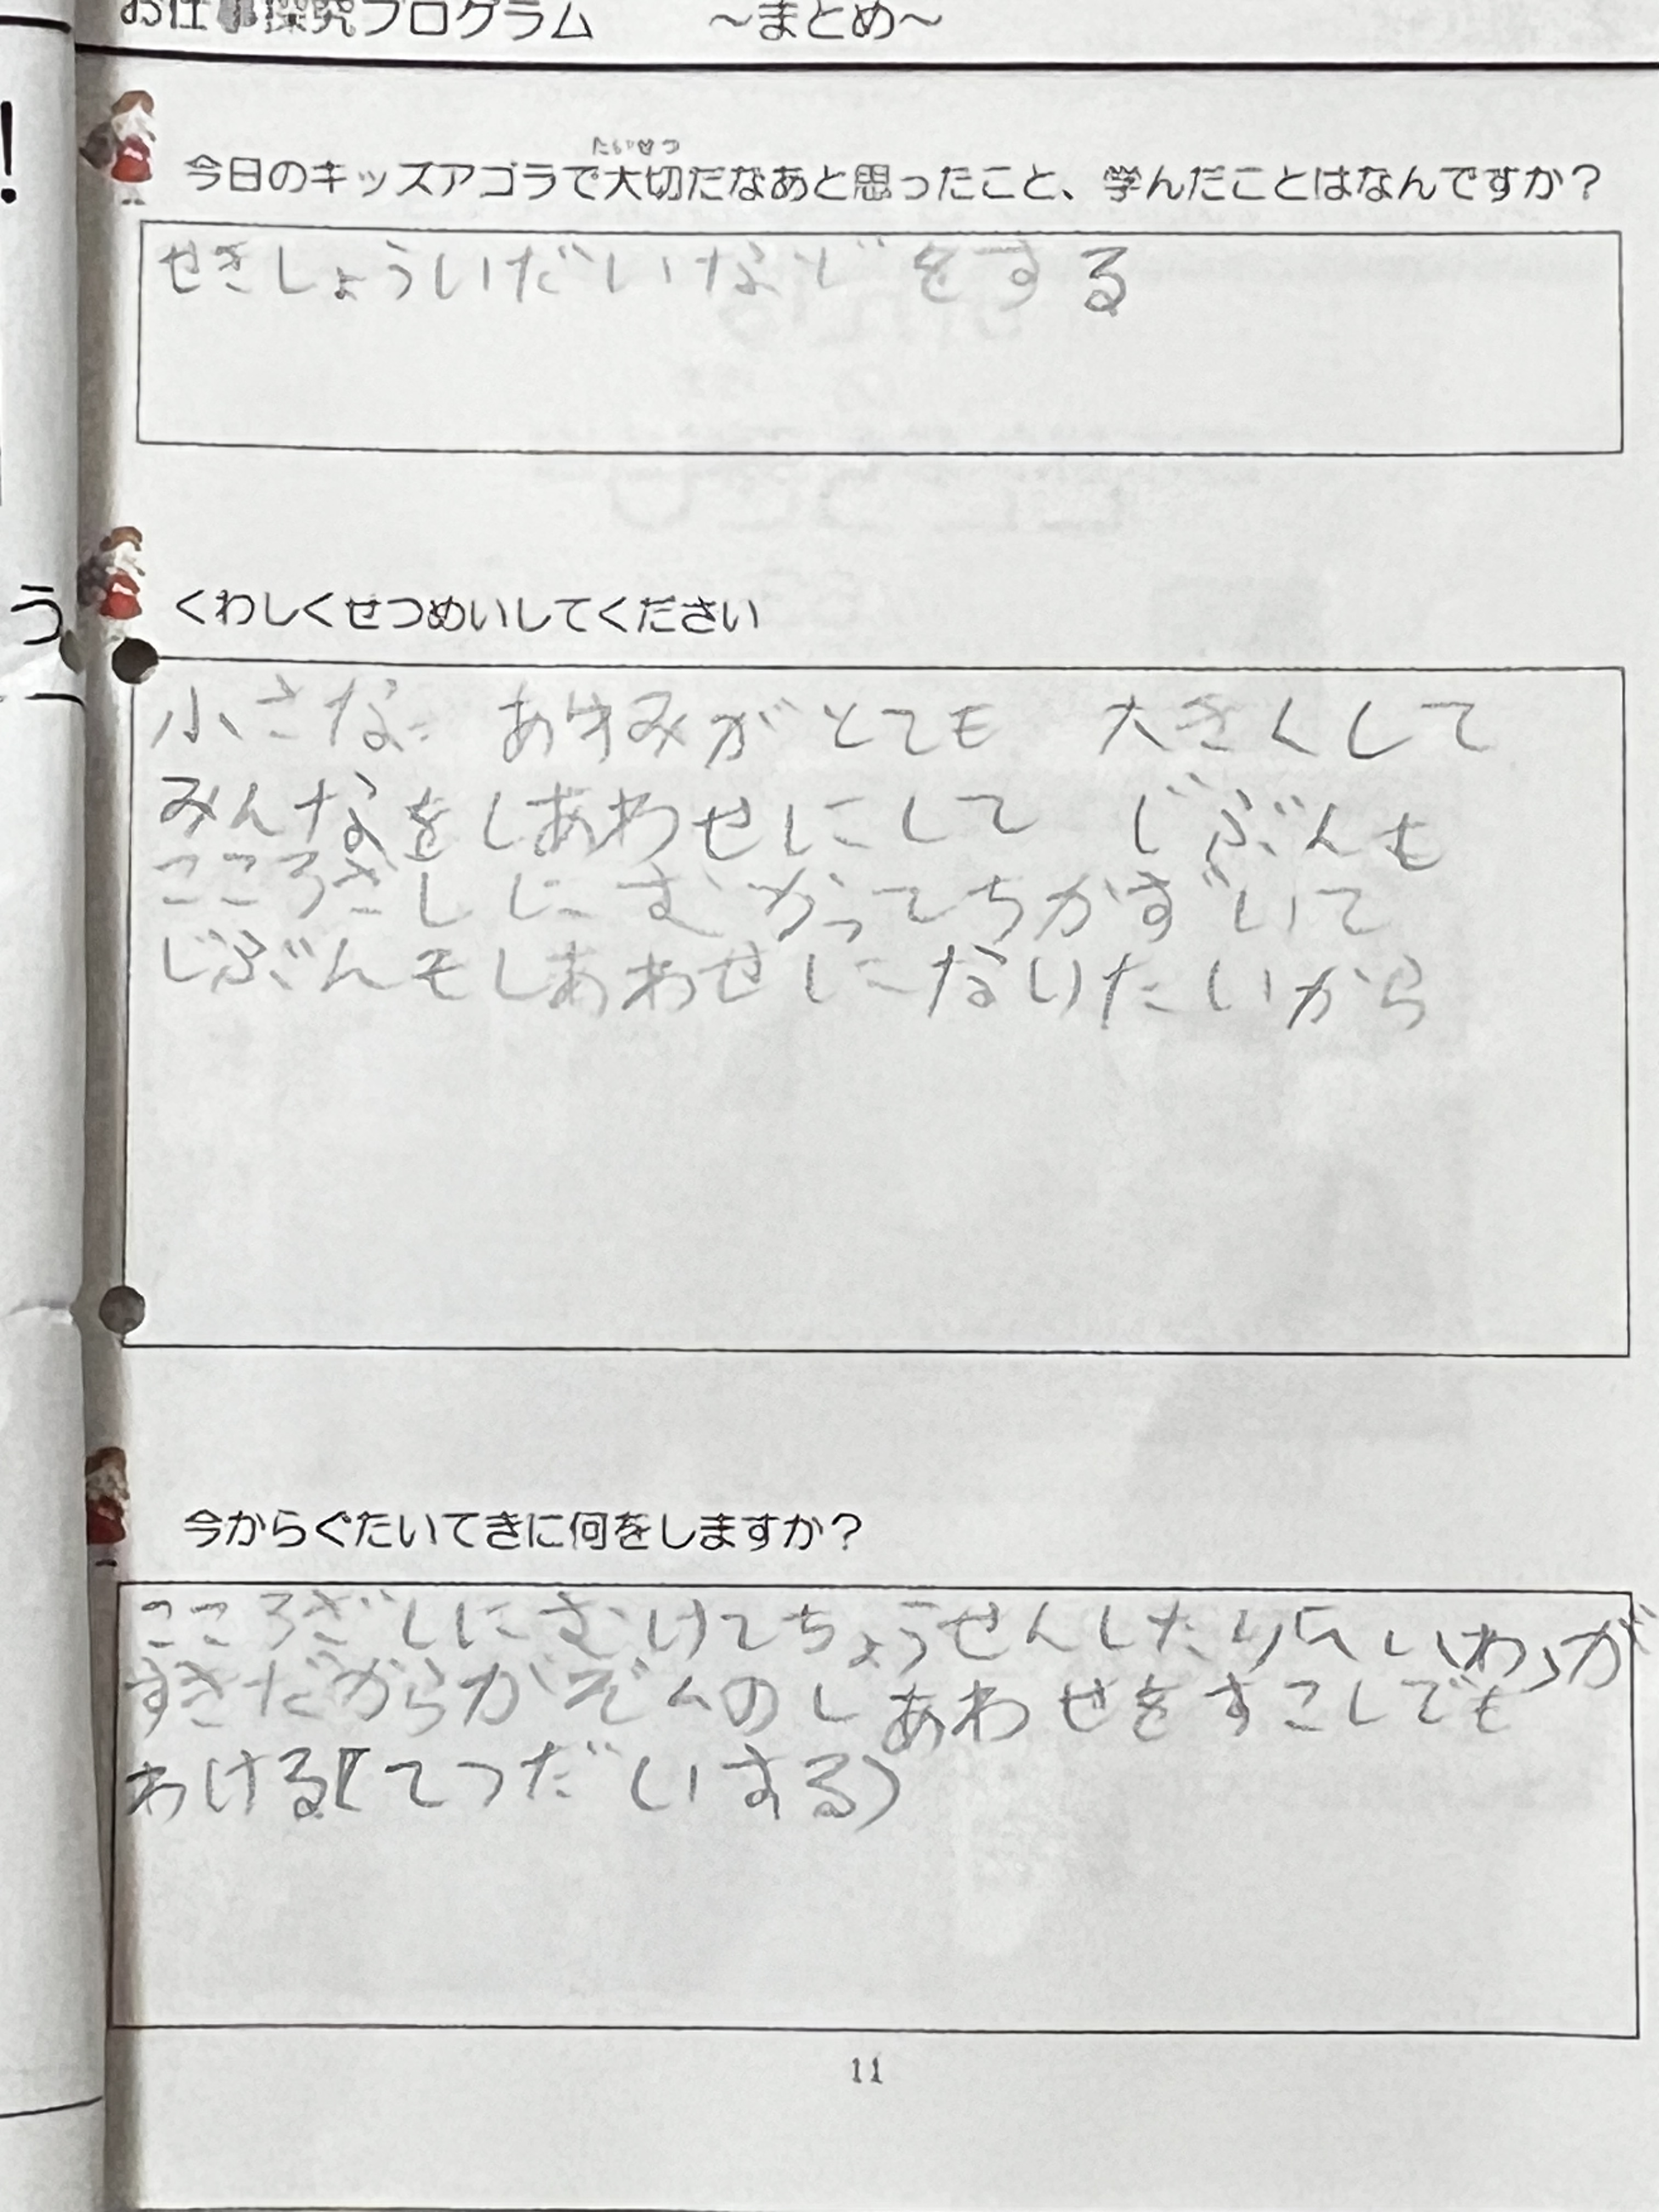 お仕事探究プログラム　～まとめ～
！
たいせつ
今日のキッズアゴラで大切だなあと思ったこと、学んだことはなんですか？
せきしょういだいなどをする
う
くわしくせつめいしてください
小さな あゆみがとても 大きくして
みんなをしあわせにして じぶんも
こころざしにむかってちかずいて
じぶんもしあわせになりたいから
今からぐたいてきに何をしますか？
こころざしにむけてちょうせんしたり
すきだからかぞくのしあわせをすこしでも
わける(てつだいする)
11